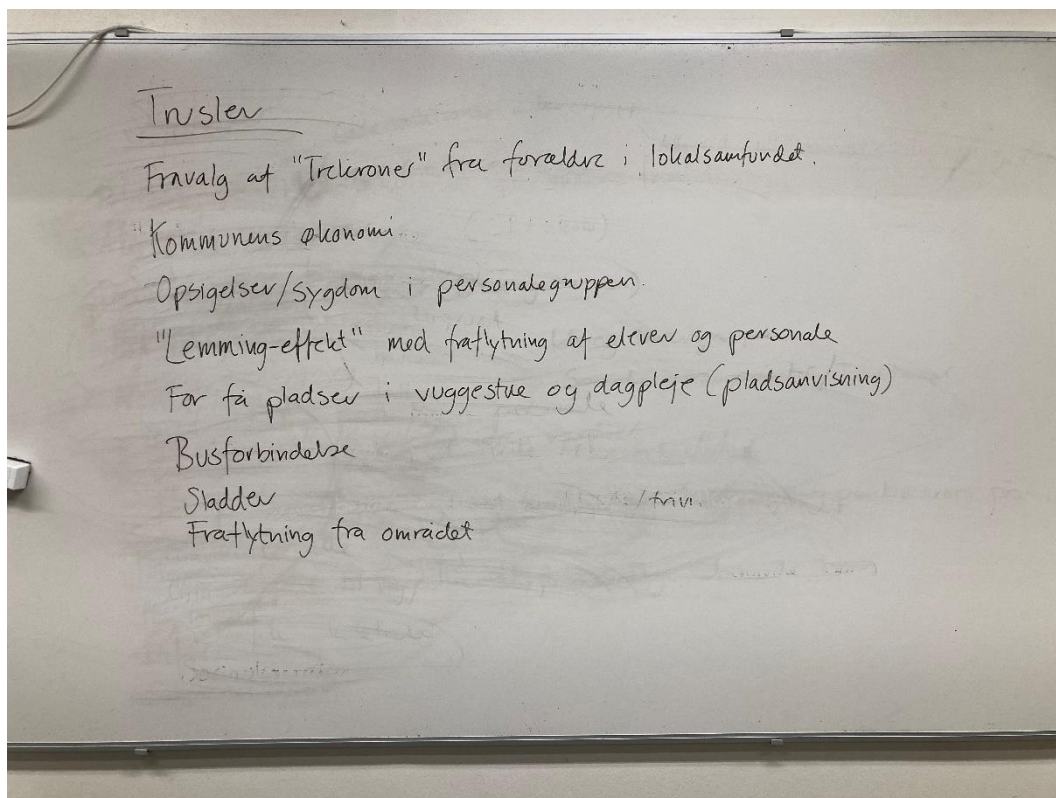 Trusler
Fravalg af "Trekroner" fra forældre i lokalsamfundet.
"Kommunens økonomi...
Opsigelser/sygdom i personalegruppen.
"Lemming-effekt" med fraflytning af elever og personale
For få pladser i vuggestue og dagpleje (pladsanvisning)
Busforbindelse
Sladder
Fraflytning fra området